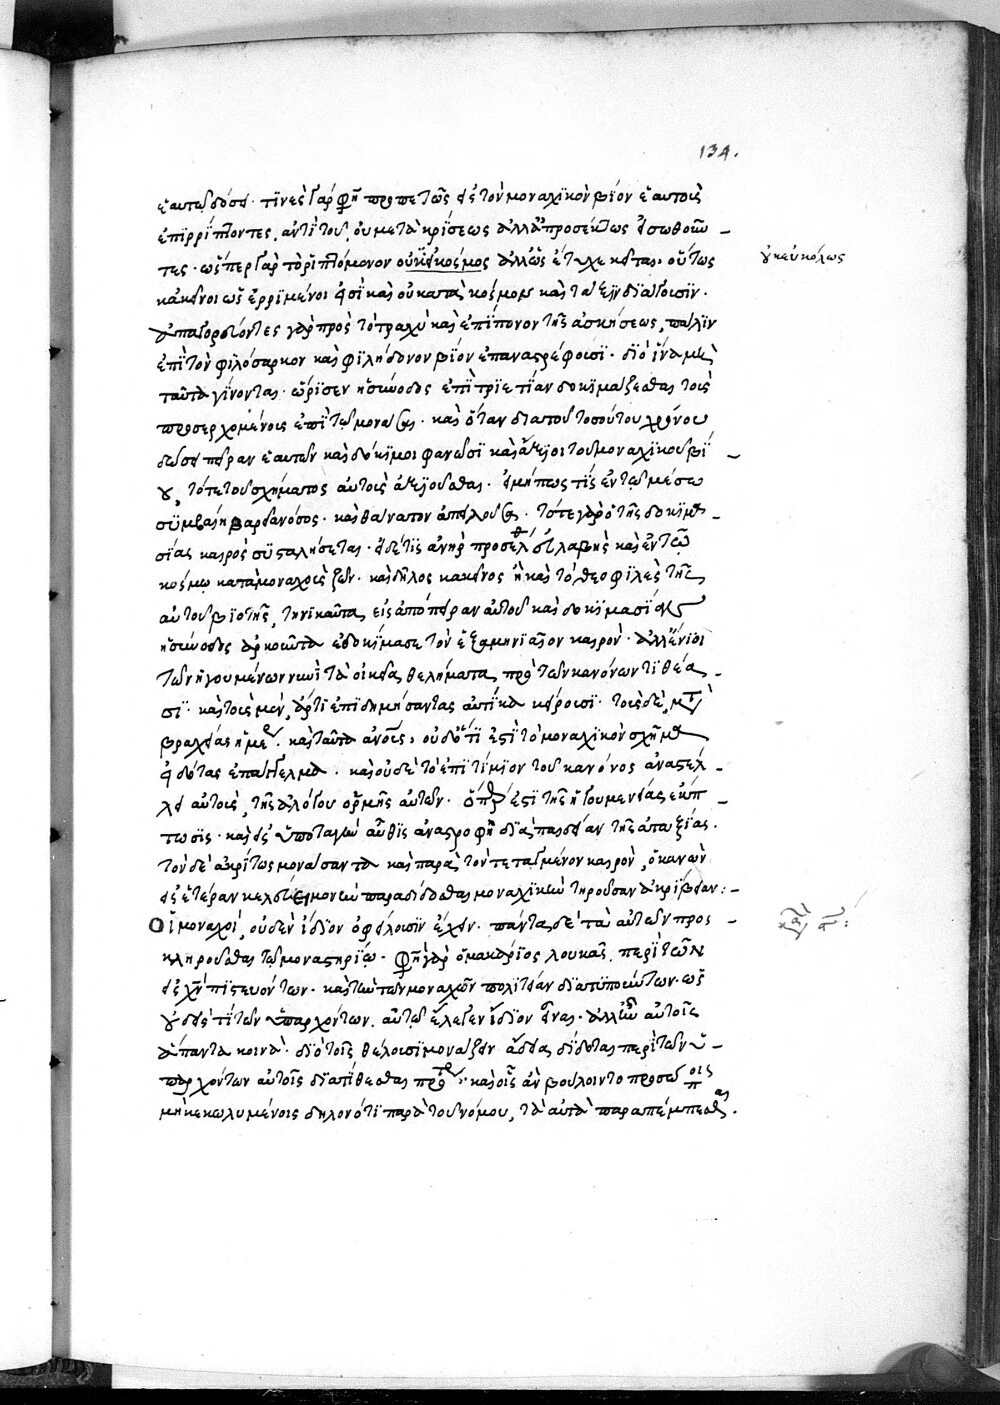 134.
ἑαυτῶ δώσει· τινὲς γάρ φησι προπετῶς εἰς τὸν μοναχικὸν βίον ἑαυτοὺς
ἐπιρρίπτοντες, ἀντὶ τοῦ, οὐ μετὰ κρίσεως ἀλλ' ἀπροσέκτως εἰσωθοῦν
τες· ὥσπερ γὰρ τὸ ῥιπτόμενον οὐκ εὐκόσμως ἀλλ' ὡς ἔτυχε κεῖται, οὕτως
γ εὐκόλως
κἀκεῖνοι ὡς ἐρριμένοι εἰσὶ καὶ οὐ κατὰ κόσμον καὶ τάξιν διάγουσιν.
ἀπαγορεύοντες γὰρ πρὸς τὸ τραχὺ καὶ ἐπίπονον τῆς ἀσκήσεως, πάλιν
ἐπὶ τὸν φιλόσαρκον καὶ φιλήδονον βίον ἐπαναστρέφουσι· διὸ ἵνα μὴ
ταῦτα γίνονται· ὥρισεν ἡ σύνοδος ἐπὶ τριετίαν δοκιμάζεσθαι τοὺς
προσερχομένους ἐπὶ τῶ μονάσαι· καὶ ὅταν διὰ τοῦ τοσούτου χρόνου
δῶσι πεῖραν ἑαυτῶν καὶ δόκιμοι φανῶσι καὶ ἄξιοι τοῦ μοναχικοῦ βί
ου, τότε τοῦ σχήματος αὐτοὺς ἀξιοῦσθαι· εἰ μήπως τις ἐν τῶ μέσω
συμβαίη βαρεῖα νόσος· καὶ θάνατον ἀπειλοῦσα· τότε γὰρ ὁ τῆς δοκιμα
σίας καιρὸς συσταλήσεται· εἰ δέ τις ἀνὴρ προσέλθοι εὐλαβὴς καὶ ἐν τῶ
κόσμω κατὰ μοναχοὺς ζῶν· καὶ δῆλος κἀκεῖνος ἢ καὶ τὸ θεοφιλὲς τῆς
αὐτοῦ βιοτῆς, τηνικαῦτα εἰς ἀπόπειραν αὐτοῦ καὶ δοκιμασίαν
ἡ σύνοδος ἀρκοῦντα ἐδοκίμασε τὸν ἑξαμηνιαῖον καιρόν· ἀλλ' ἔνιοι
τῶν ἡγουμένων νυνὶ τὰ οἰκεῖα θελήματα πρὸ τῶν κανόνων τιθέα
σι· καὶ τοὺς μὲν ἄρτι ἐπιδημήσαντας αὐτίκα κείρουσι· τοὺς δὲ, μετὰ
βραχείας ἡμέρας· καὶ ταῦτα ἀνοὺς, οὐδ' ὅ,τι ἐστὶ τὸ μοναχικὸν σχῆμα
εἰδότας ἐπάγγελμα· καὶ οὐδὲ τὸ ἐπιτίμιον τοῦ κανόνος ἀναστέλ
λει αὐτοὺς τῆς ἀλόγου ὁρμῆς αὐτῶν· ὅπερ ἐστὶ τῆς ἡγουμενείας ἔκπ
τωσις· καὶ εἰς ὑποταγὴν αὖθις ἀναστροφὴ διὰ πᾶσαν τῆς ἀταξίας.
τὸν δὲ ἀκρίτως μονάσαντα καὶ παρὰ τὸν τεταγμένον καιρὸν, ὁ κανὼν
εἰς ἑτέραν κελεύει μονὴν παραδίδοσθαι μοναχικὴν τηροῦσαν ἀκρίβειαν:
Οἱ μοναχοὶ, οὐδὲν ἴδιον ὀφείλουσιν ἔχειν· πάντα δὲ τὰ αὐτῶν προσ
κληροῦσθαι τῶ μοναστηρίω· φησὶ γὰρ ὁ μακάριος λουκᾶς, περὶ τῶν
εἰς χν πιστευόντων· καὶ τὴν τῶν μοναχῶν πολιτείαν διατυπούντων· ὡς
οὐδείς τι τῶν ὑπαρχόντων αὐτῶ ἔλεγεν ἴδιον εἶναι· ἀλλ' ἦν αὐτοῖς
ἅπαντα κοινά· διὸ τοῖς θέλουσι μονάζειν ἄδεια δίδοται περὶ τῶν ὑ
παρχόντων αὐτοῖς διατίθεσθαι πρότερον· καὶ οἷς ἂν βούλοιντο προσώποις
μὴ κεκωλυμένοις δηλονότι παρὰ τοῦ νόμου, τὰ αὐτὰ παραπέμπεσθαι.